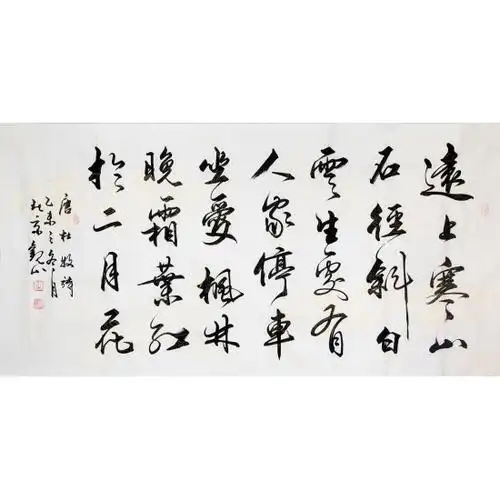 遠上寒山
石徑斜白
雲生處有
人家停車
坐愛楓林
晚霜葉紅
於二月花
唐杜牧詩
乙未之冬月